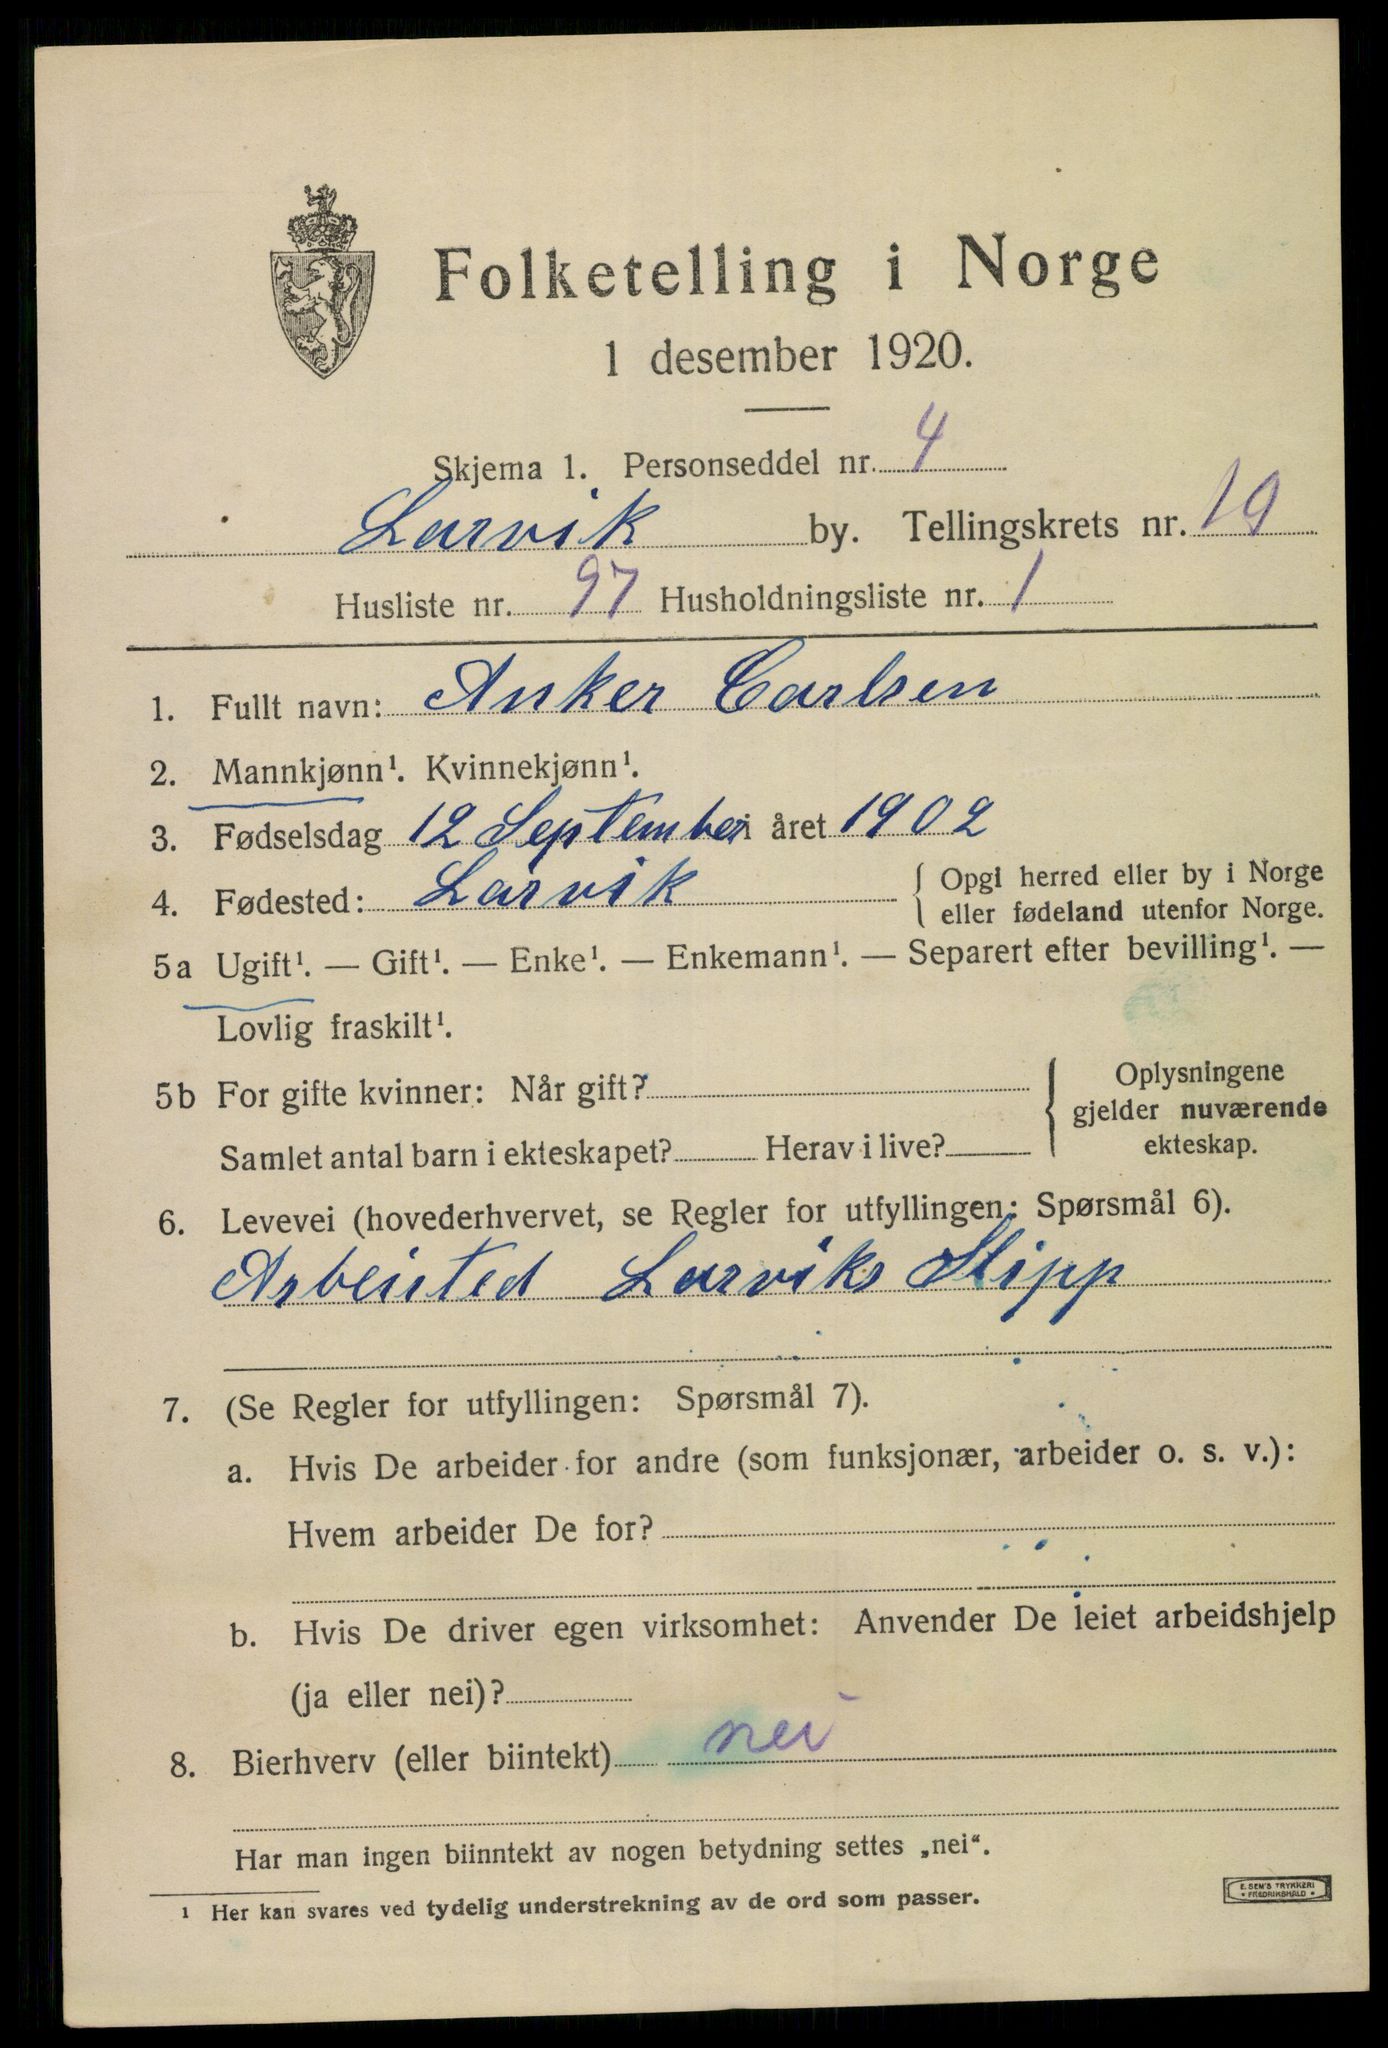 Folketelling i Norge
1 desember 1920.
Skjema 1. Personseddel nr. 4
Larvik by. Tellingskrets nr. 19
Husliste nr. 97 Husholdningsliste nr. 1
1. Fullt navn: Anker Carlsen
2. Mannkjønn¹. Kvinnekjønn¹.
3. Fødselsdag 12 September i året 1902
4. Fødested: Larvik { Opgi herred eller by i Norge
eller fødeland utenfor Norge.
5a Ugift¹. — Gift¹. — Enke¹. — Enkemann¹. — Separert efter bevilling¹. —
Lovlig fraskilt¹.
5b For gifte kvinner: Når gift? { Oplysningene
gjelder nuværende
Samlet antal barn i ekteskapet? Herav i live? ekteskap.
6. Levevei (hovederhvervet, se Regler for utfyllingen: Spørsmål 6).
Arbeisted Larviks Slipp
7. (Se Regler for utfyllingen: Spørsmål 7).
a. Hvis De arbeider for andre (som funksjonær, arbeider o. s. v.):
Hvem arbeider De for?
b. Hvis De driver egen virksomhet: Anvender De leiet arbeidshjelp
(ja eller nei)?
8. Bierhverv (eller biintekt) nei
Har man ingen biinntekt av nogen betydning settes „nei“.
¹ Her kan svares ved tydelig understrekning av de ord som passer.
E. SEM'S TRYKKERI
• FREDRIKSHALD •